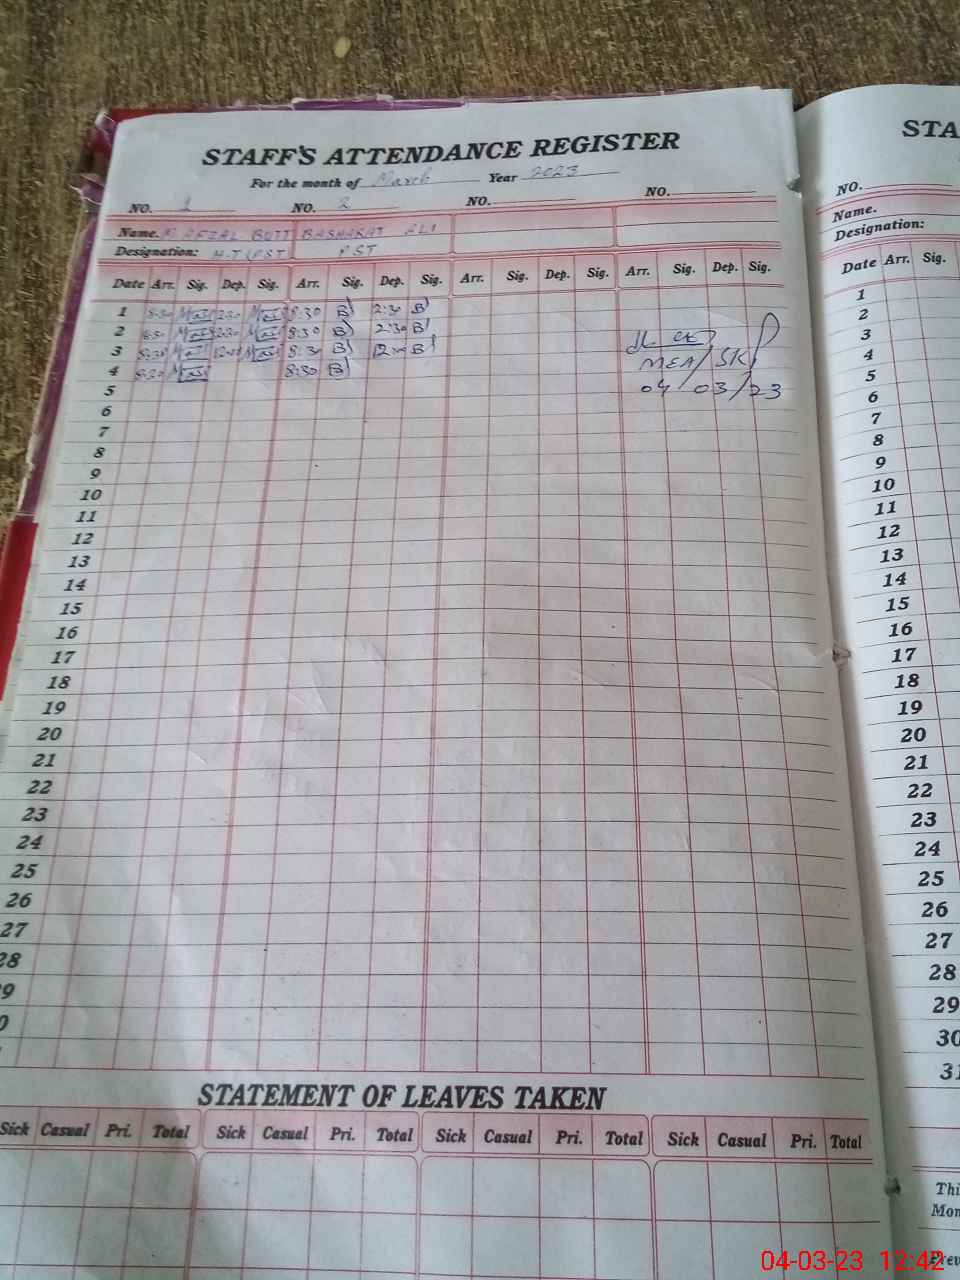 STAFF'S ATTENDANCE REGISTER
For the month of March Year 2023
NO. 1 NO. 2 NO. NO.
Name. M AFZAL BUTT BASHARAT ALI
Designation: H-T (PST PST
Date Arr. Sig. Dep. Sig. Arr. Sig. Dep. Sig. Arr. Sig. Dep. Sig. Arr. Sig. Dep. Sig.
1 8:30 2:30 8:30 B 2:30 B
2 8:30 2:30 8:30 B 2:30 B
3 8:30 12:00 8:30 B 12:00 B
4 8:30 8:30 B
MEA/SKP
04/03/23
5
6
7
8
9
10
11
12
13
14
15
16
17
18
19
20
21
22
23
24
25
26
27
28
9
0
STATEMENT OF LEAVES TAKEN
Sick Casual Pri. Total Sick Casual Pri. Total Sick Casual Pri. Total Sick Casual Pri. Total
STA
NO.
Name.
Designation:
Date Arr. Sig.
1
2
3
4
5
6
7
8
9
10
11
12
13
14
15
16
17
18
19
20
21
22
23
24
25
26
27
28
29
30
31
Thi
Mon
Prev
04-03-23 12:42